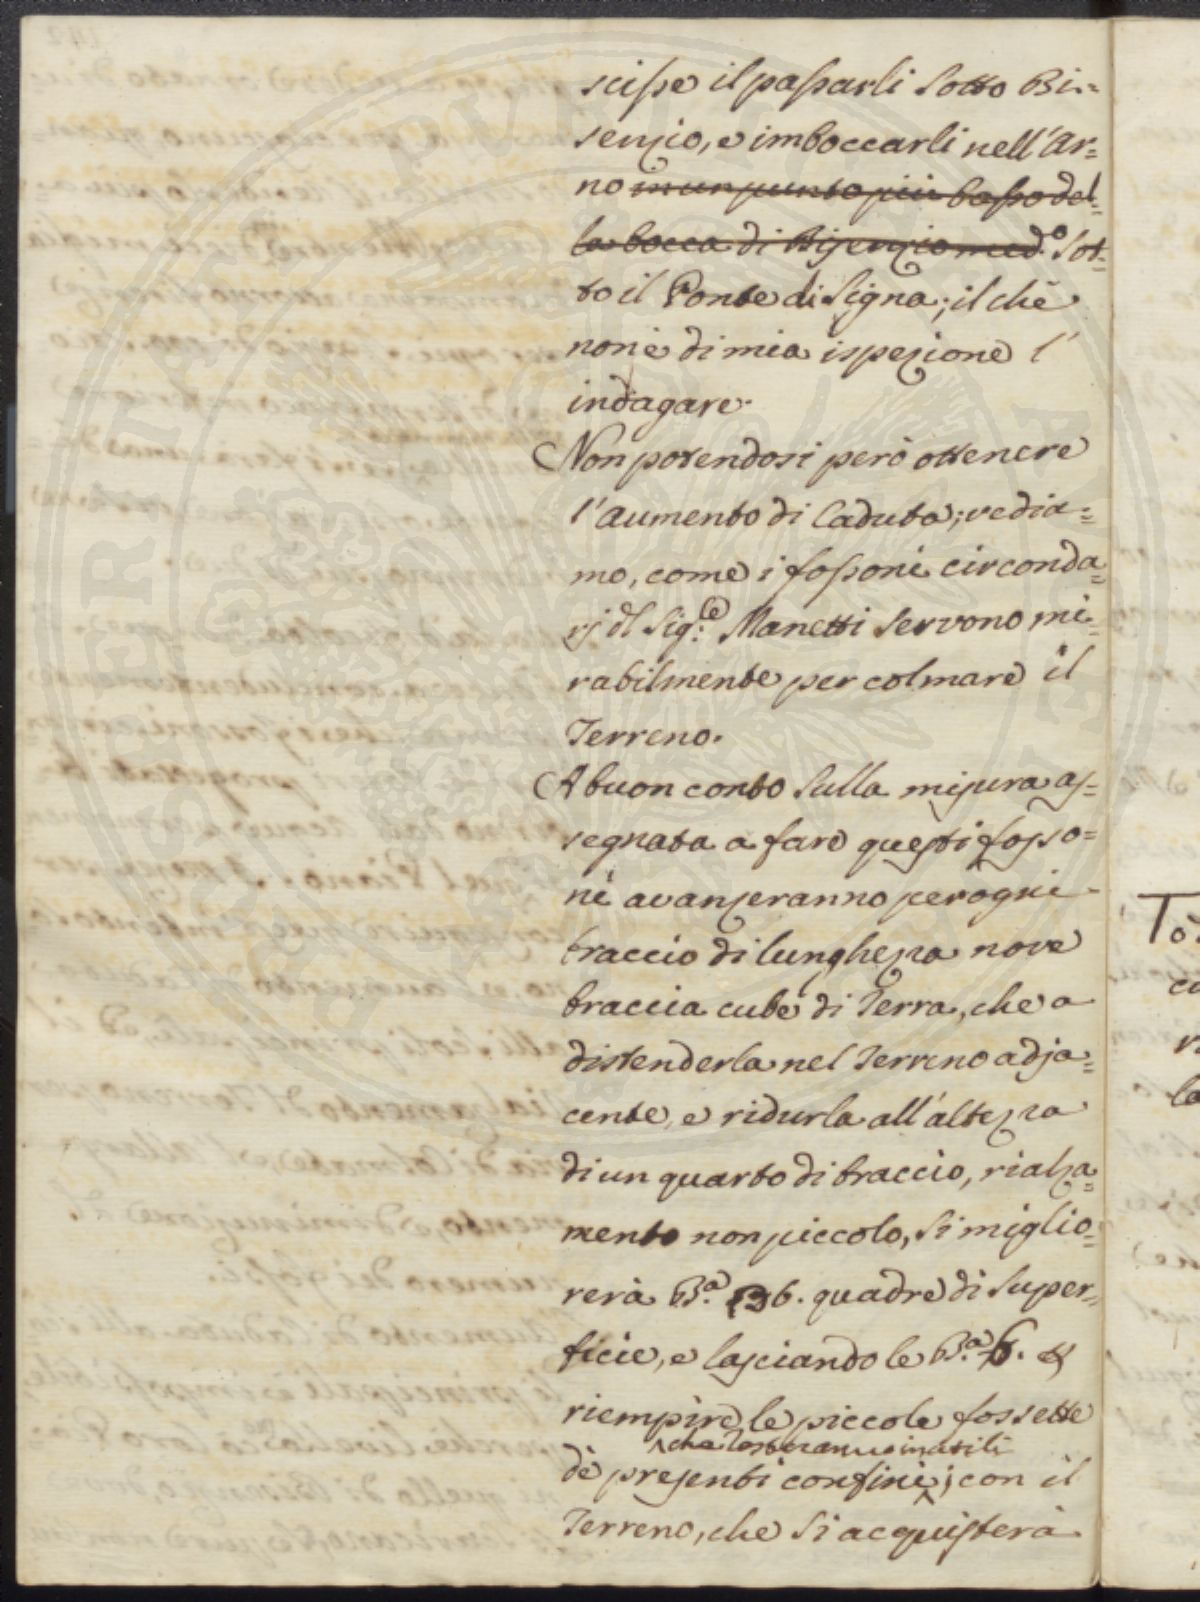 scisse il passarli sotto Bi=
senzio, e imboccarli nell'Ar=
no in un punto più basso del=
la bocca di Bisenzio med.° sot=
to il Ponte di Signa; il chè
non è di mia ispezione l'
indagare.
Non potendosi però ottenere
l'aumento di Caduta; vedia=
mo, come i fossoni circonda=
rj dl Sig.re Manetti servono mi=
rabilmente per colmare il
Terreno.
A buon conto sulla misura as=
segnata a fare questi fosso=
ni avanzeranno per ogni
braccio di lunghezza nove
braccia cube di Terra, che a
distenderla nel Terreno adja=
cente, e ridurla all'altezza
di un quarto di braccio, rialza=
mento non piccolo, si miglio=
rerà B.a 36. quadre di super=
ficie, e lasciando le B.a 6. 
riempire le piccole fossette
che resteranno inutili
dè presenti confini; con il
Terreno, che si acquisterà
To
la